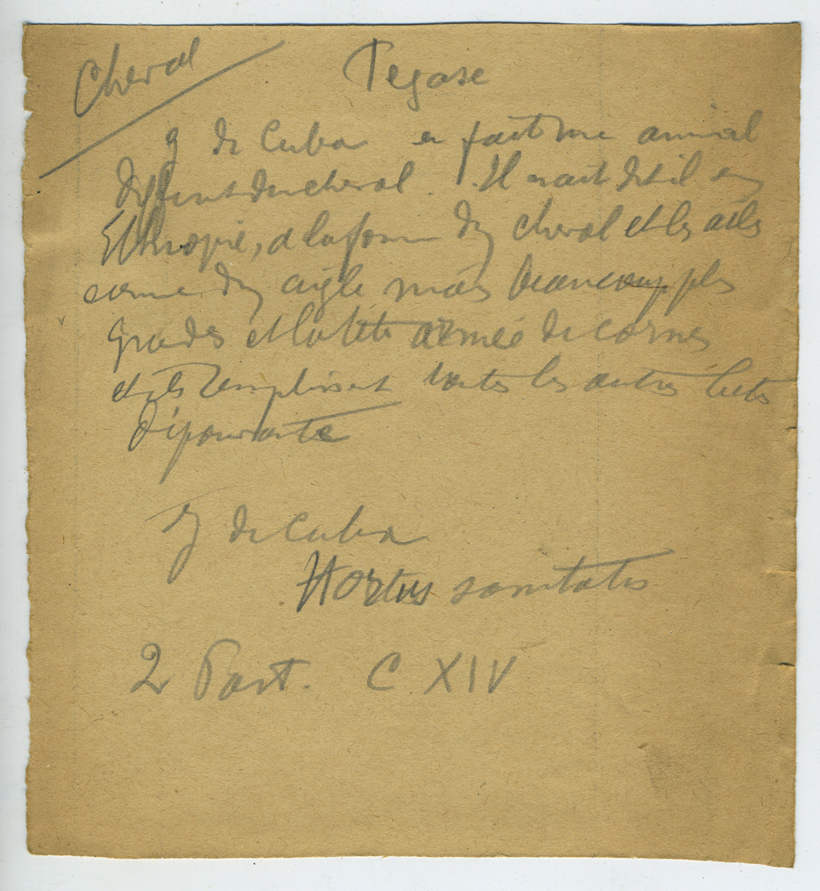 Cheval
Pegase
J de Cuba en fait une animal
différent du cheval. Il nait dit il en
Ethiopie, a la forme d'un cheval et les ailes
comme d'un aigle mais beaucoup plus
grandes et la tête armée de cornes
et ils remplissent toutes les autres betes
d'épouvante
J de Cuba
Hortus sanitatis
2e Part. C. XIV